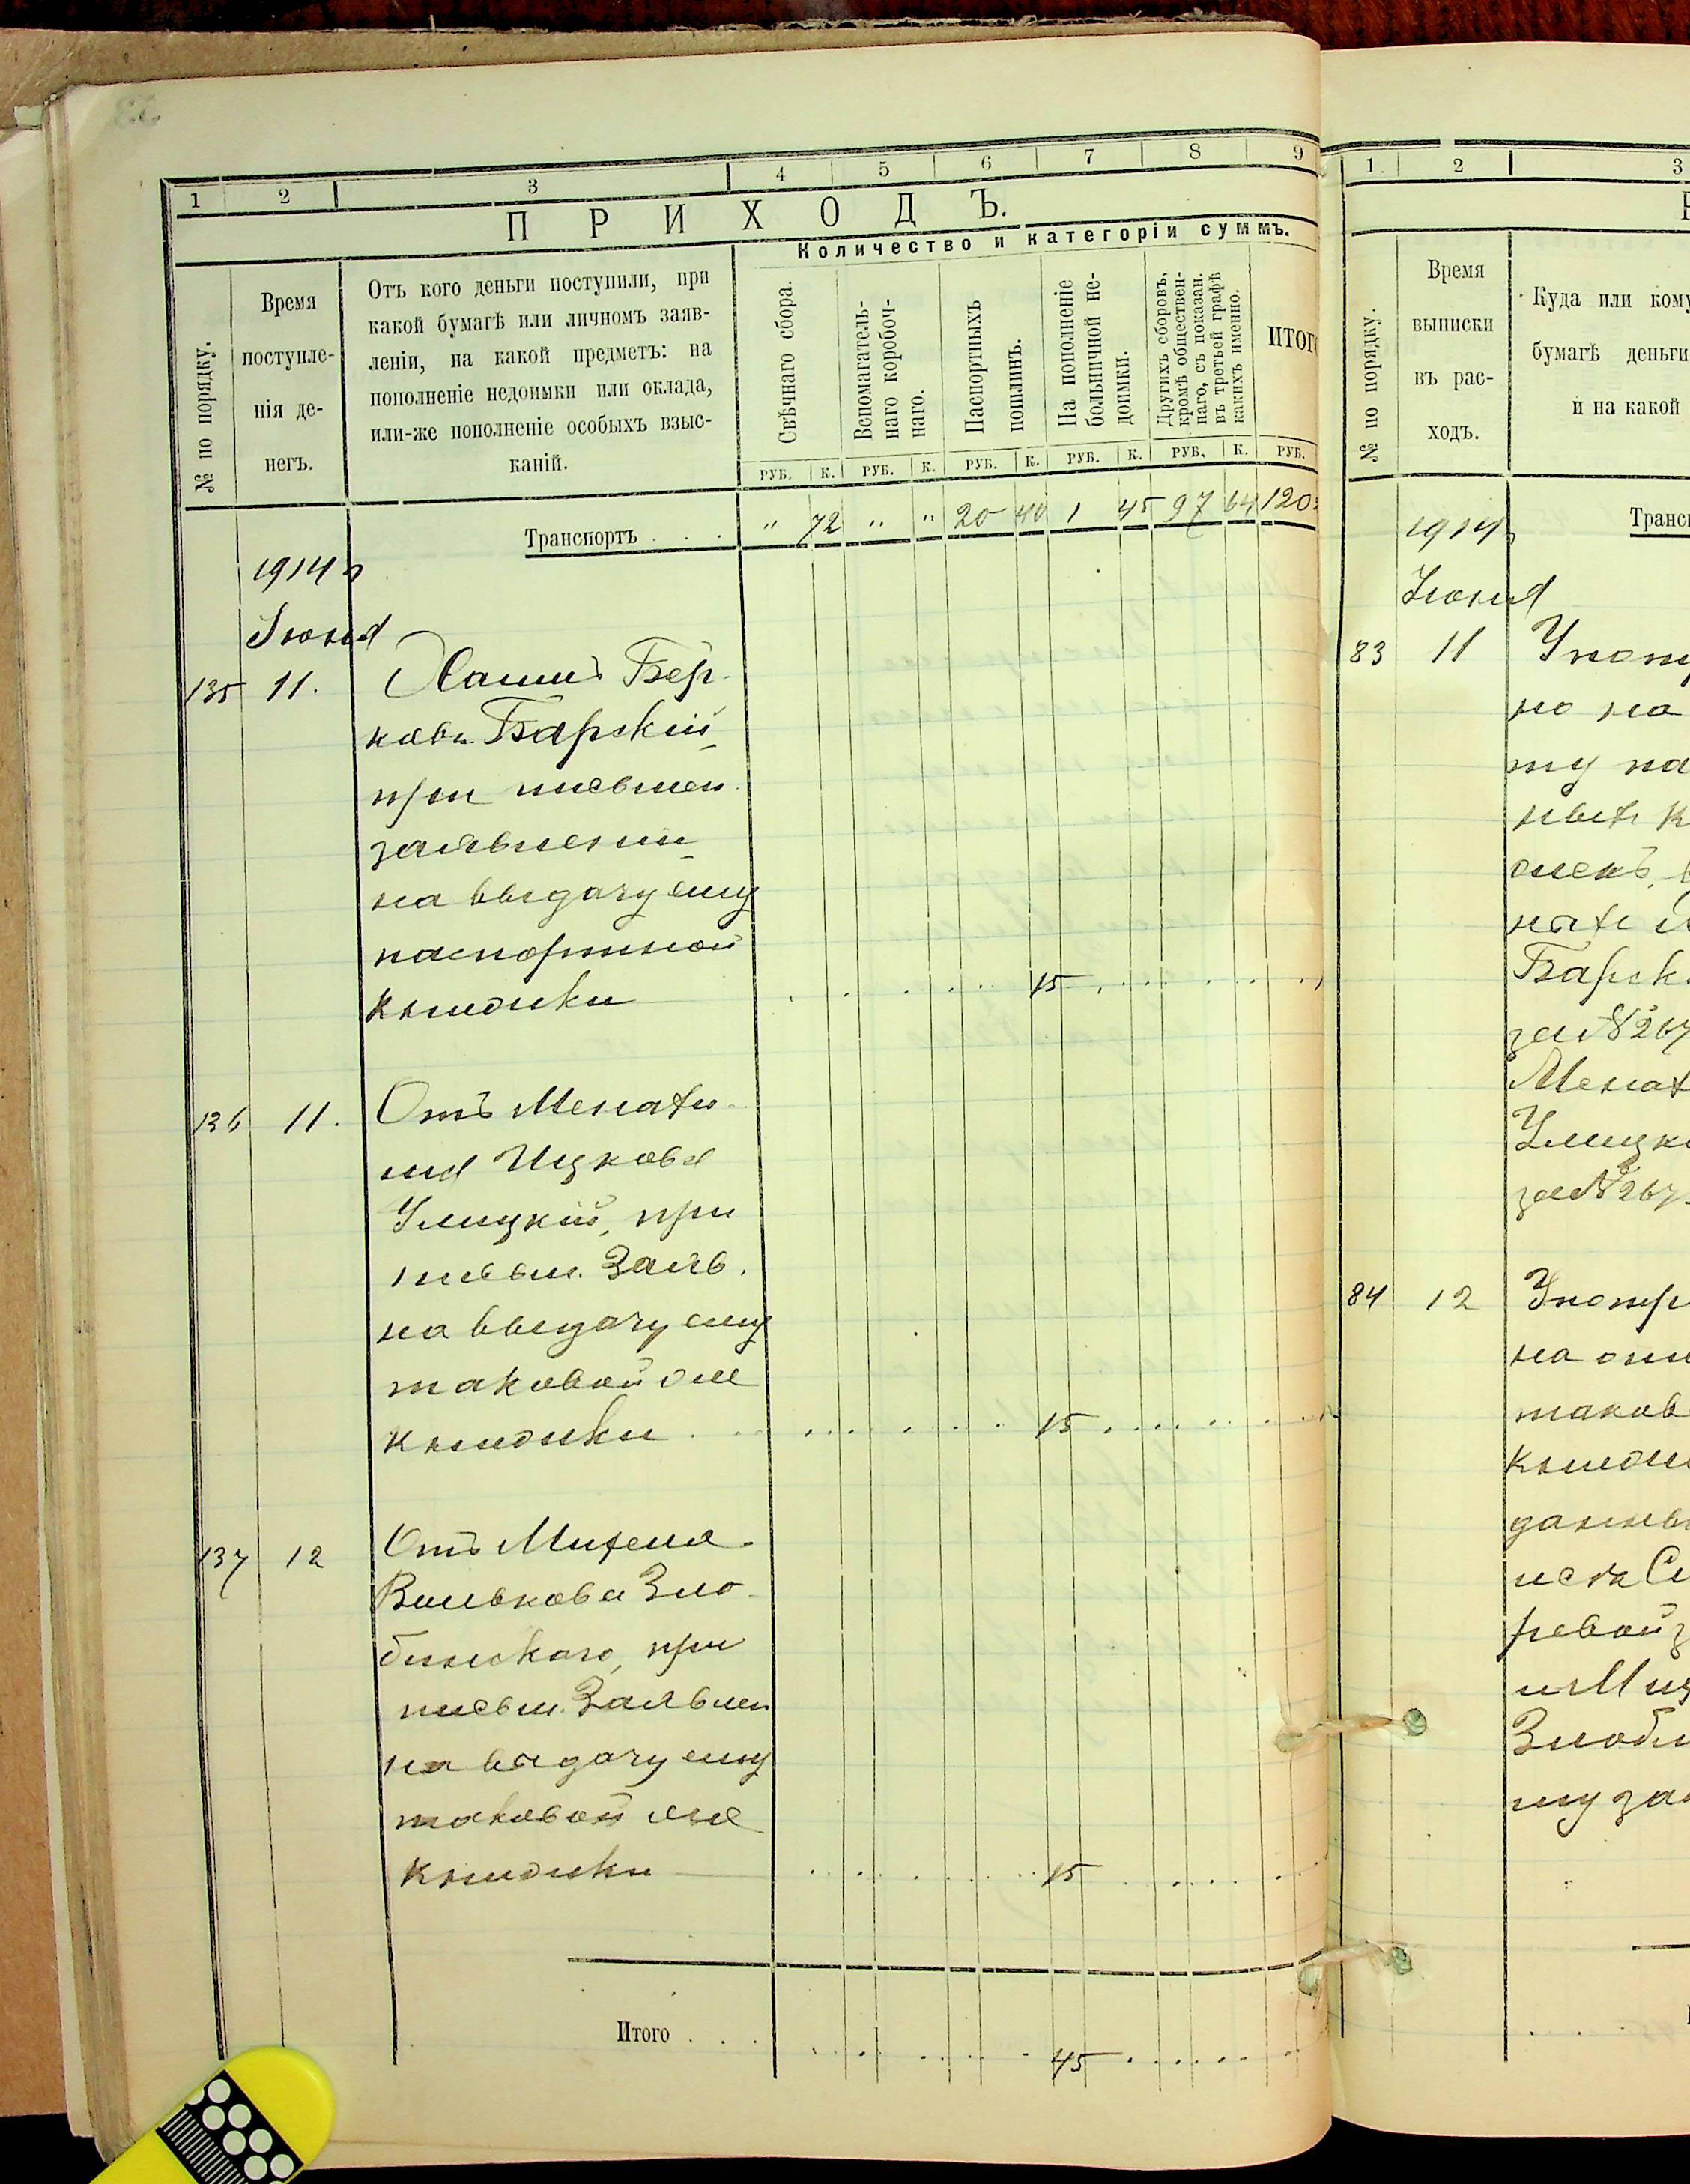 1 2 3 4 5 6 7 8 9
ПРИХОДЪ.
Количество и категоріи суммъ.
№ по порядку.
Время
поступле-
нія де-
негъ.
Отъ кого деньги поступили, при
какой бумагѣ или личномъ заяв-
леніи, на какой предметъ: на
пополненіе недоимки или оклада,
или-же пополненіе особыхъ взыс-
каній.
Свѣчнаго сбора.
Вспомагатель-
наго коробоч-
наго.
Паспортныхъ
пошлинъ.
На пополненіе
больничной не-
доимки.
Другихъ сборовъ,
кромѣ обществен-
наго, съ показан.
въ третьей графѣ
какихъ именно.
ИТОГ
РУБ. К. РУБ. К. РУБ. К. РУБ. К. РУБ. К. РУБ.
Транспортъ . . . " 72 " " 20 40 1 45 97 64 120
1914 г
Іюня
135 11. Бер-
ковъ Барскій
при письмен.
заявленіи
на выдачу ему
паспортной
книжки 15
136 11. Отъ
Ицкова
Улицкій, при
письм. Заяв.
на выдачу ему
таковой же
книжки 15
137 12 Отъ Михеля
Вулькова Зло-
бинскаго, при
письм. Заявлен
на выдачу ему
таковой же
книжки 15
Итого . . . 45
1. 2 3
№ по порядку.
Время
выписки
въ рас-
ходъ.
Куда или кому
бумагѣ деньги
и на какой
Трансп
1914 г
Іюня
83 11 Упот
но на
ту па
ныхъ к
жекъ,
Барск
за № 267
Улицк
за № 267
84 12 Употр
на
таков
книж
данны
ревой
и Мих
Злоби
му за